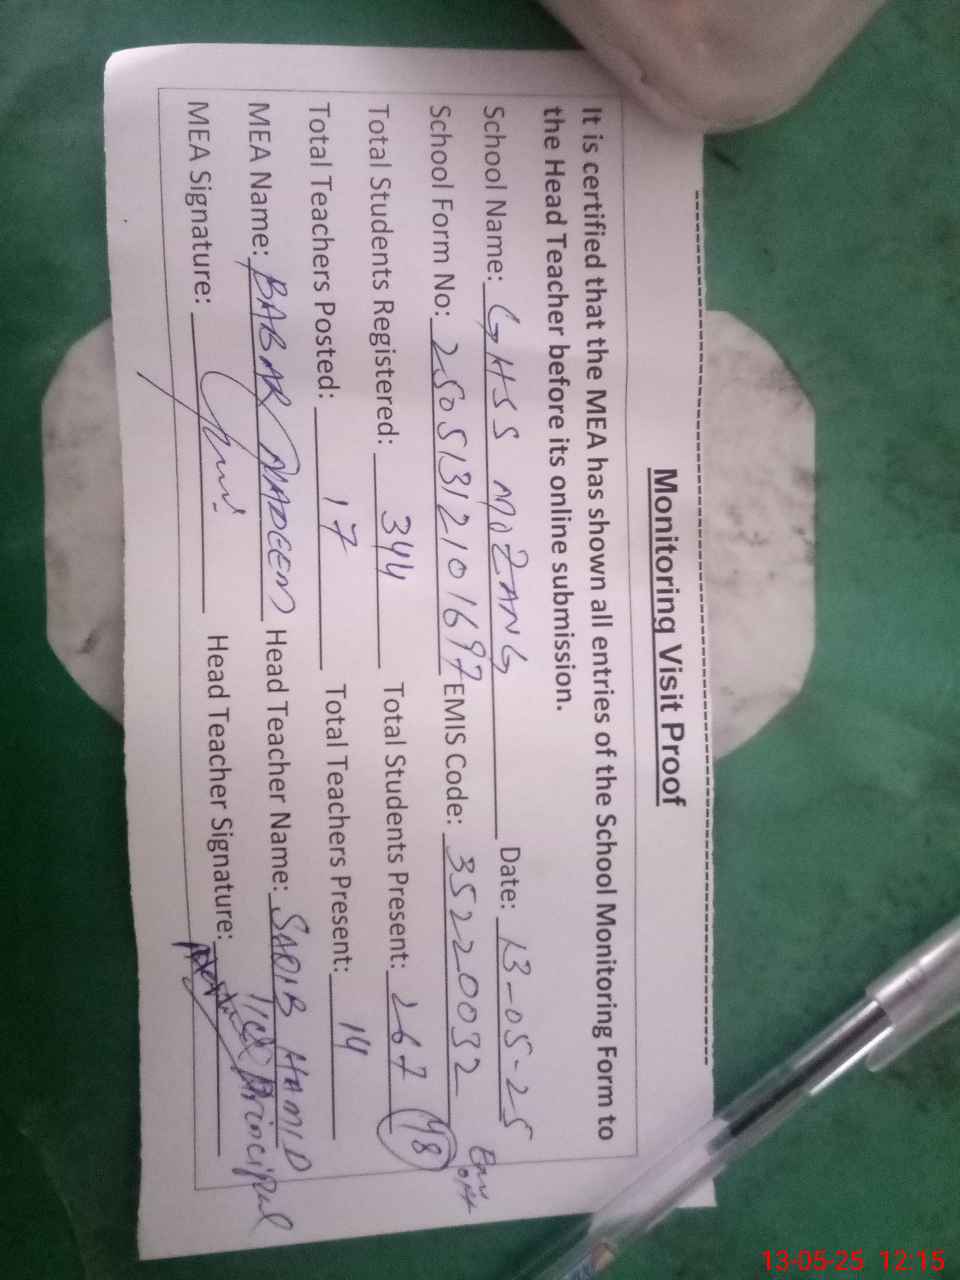 Monitoring Visit Proof
It is certified that the MEA has shown all entries of the School Monitoring Form to
the Head Teacher before its online submission.
School Name: GHSS MOZANG Date: 13-05-25
School Form No: 25051312101697 EMIS Code: 35220032
Total Students Registered: 344 Total Students Present: 267 (48)
Total Teachers Posted: 17 Total Teachers Present: 14
MEA Name: BABAR NADEEM Head Teacher Name: SAQIB HAMID
MEA Signature: Head Teacher Signature: Principal
13-05-25 12:15